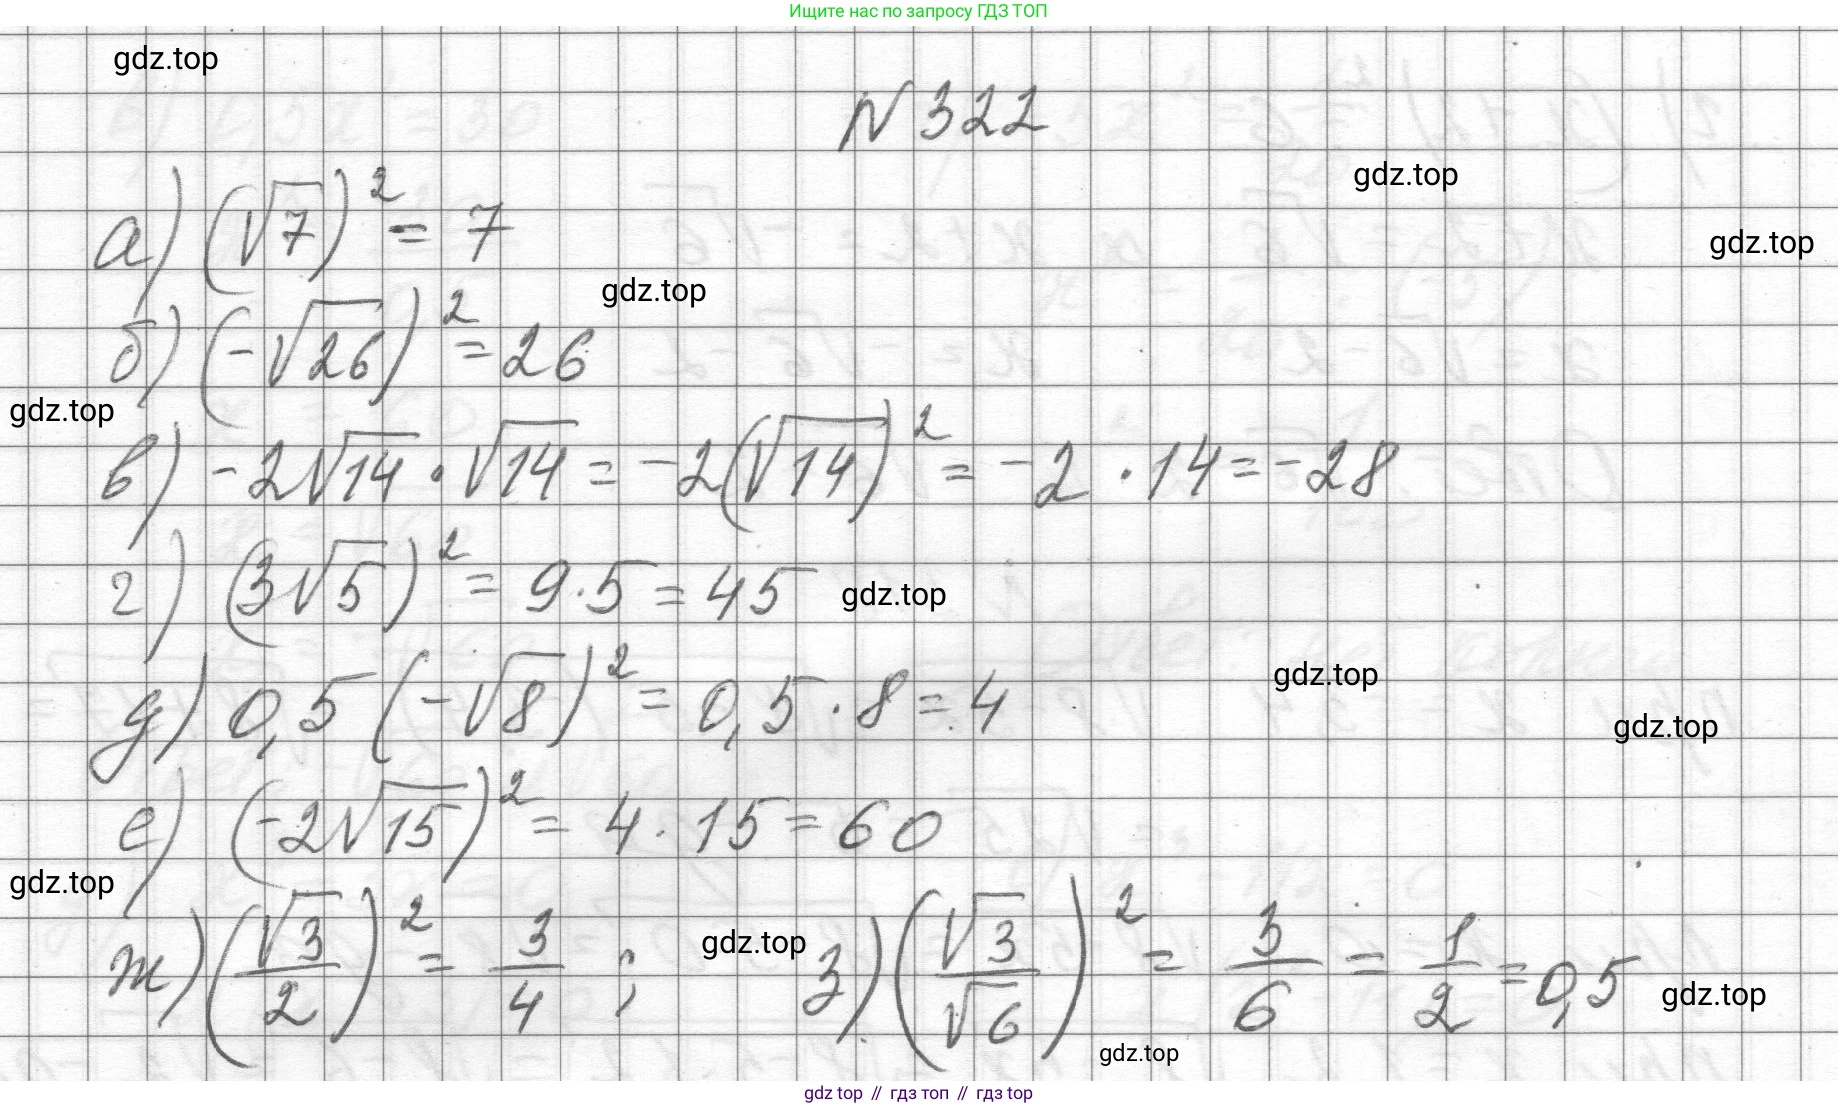 Ищите нас по запросу ГДЗ ТОП
gdz.top
N 322
gdz.top
а) (√7)² = 7
gdz.top
gdz.top
б) (-√26)² = 26
gdz.top
в) -2√14 · √14 = -2(√14)² = -2 · 14 = -28
г) (3√5)² = 9·5 = 45
gdz.top
gdz.top
д) 0,5 (-√8)² = 0,5 · 8 = 4
gdz.top
е) (-2√15)² = 4 · 15 = 60
gdz.top
ж) (√3/2)² = 3/4 ; gdz.top з) (√3/√6)² = 3/6 = 1/2 = 0,5
gdz.top
gdz.top
gdz top // гдз топ // гдз top